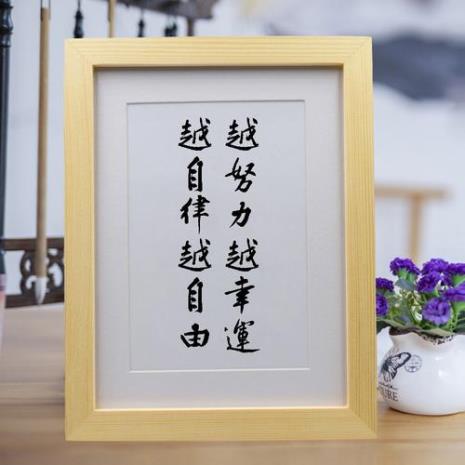 越努力越幸運
越自律越自由
URE